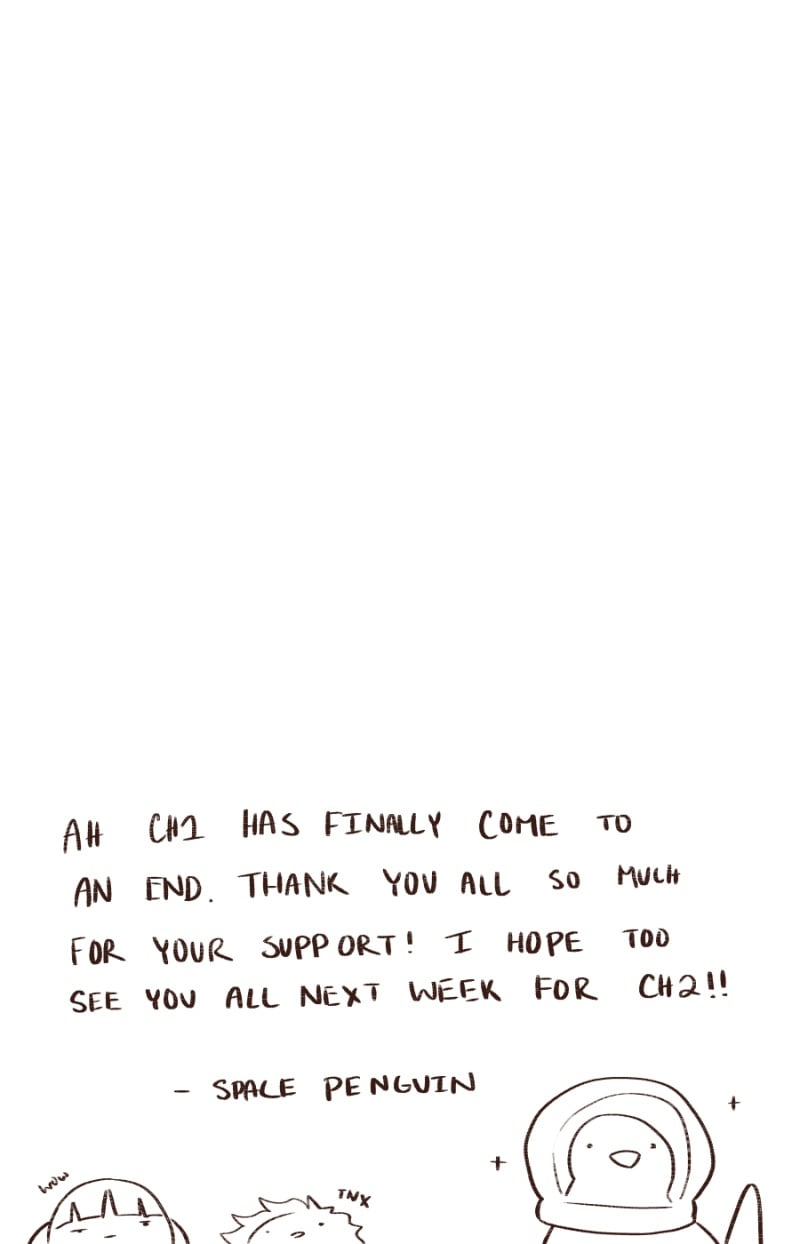 AH CH1 HAS FINALLY COME TO
AN END. THANK YOU ALL SO MUCH
FOR YOUR SUPPORT! I HOPE TOO
SEE YOU ALL NEXT WEEK FOR CH2!!
- SPACE PENGUIN
WOW
TNX